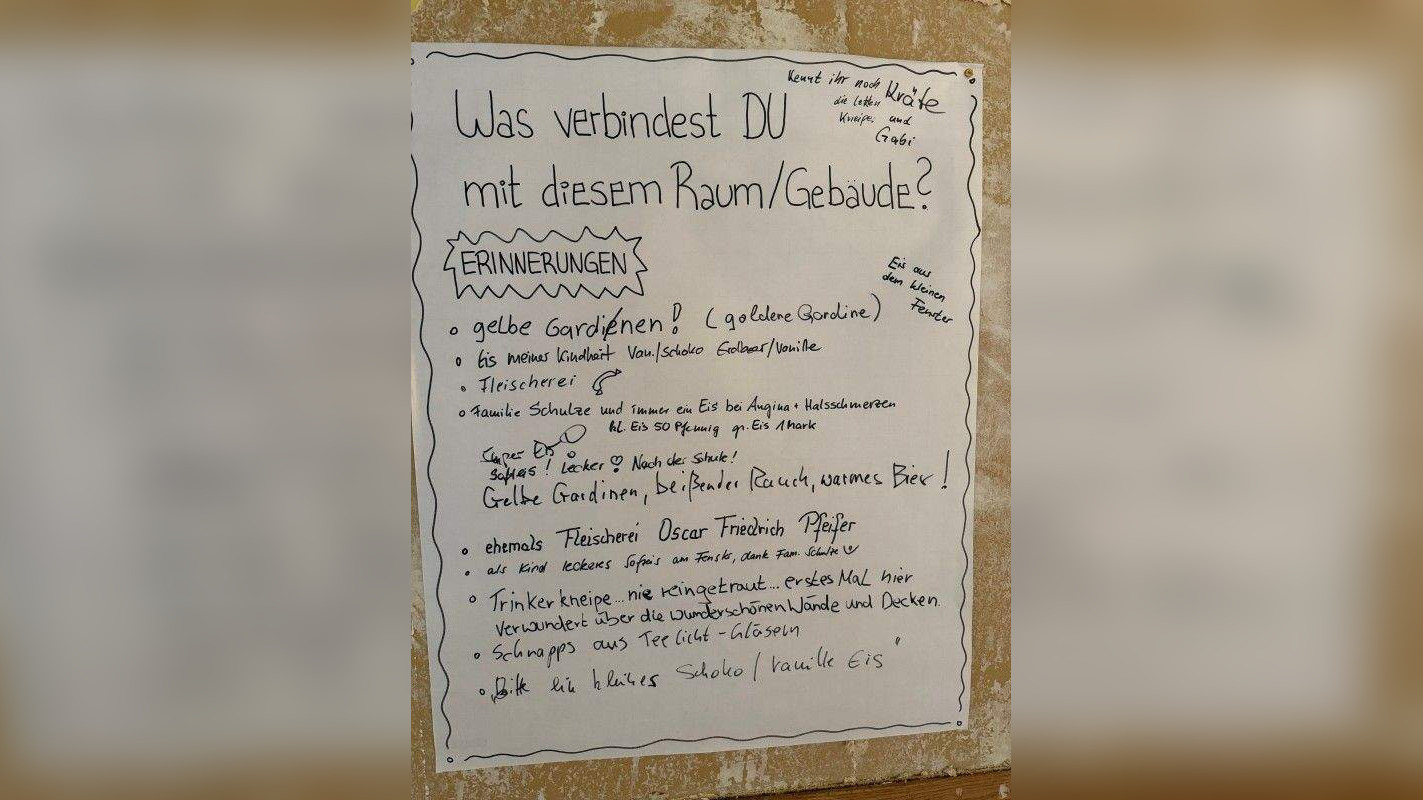 Kennt ihr noch Kräte
die letzten
Kneipe und
Gabi
Was verbindest DU
mit diesem Raum/Gebäude?
ERINNERUNGEN
Eis aus
dem kleinen
Fenster
gelbe Gardienen! (goldene Gardine)
Eis meiner Kindheit Van./Schoko Erdbeer/Vanille
Fleischerei
Familie Schulze und immer ein Eis bei Angina + Halsschmerzen
kl. Eis 50 Pfennig gr. Eis 1 Mark
Super Eis
Softeis! Lecker! Nach der Schule!
Gelbe Gardinen, beißender Rauch, warmes Bier!
ehemals Fleischerei Oscar Friedrich Pfeifer
als Kind leckeres Softeis am Fenster, dank Fam. Schulze
Trinkerkneipe... nie reingetraut... erstes Mal hier
verwundert über die wunderschönen Wände und Decken.
Schnapps aus Teelicht-Gläsern
„Bitte ein kleines Schoko/Vanille Eis"